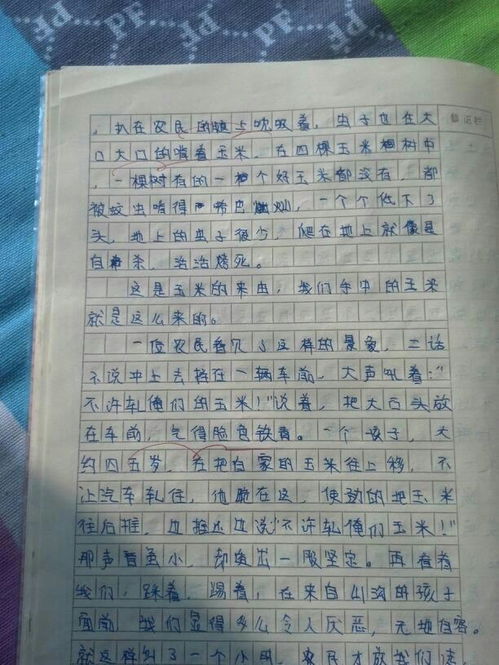 PF PF PF
备记栏
，趴在农民的脸上吮吸着，虫子也在大
口大口的啃着玉米，在四棵玉米树中
，一棵树有的一个好玉米都没有，都
被蚊虫啃得稀巴烂，一个个低下了
头，地上的虫子很少，爬在地上就像是
自杀，活活烤死。
这是玉米的来由，我们手中的玉米
就是这么来的。
一位农民看见了这样的景象，二话
不说冲上去挡在一辆车前，大声吼着：“
不许轧俺们的玉米！”说着，把大石头放
在车前，气得脸色铁青。一个孩子，大
约四五岁，在把自家的玉米往上移，不
让汽车轧住，他蹲在这，使劲的把玉米
往后推，边推还边说“不许轧俺们玉米！”
那声音虽小，却透出一股坚定。再看看
我们，踩着，踢着，在来自山沟的孩子
面前，我们显得多么令人厌恶，无地自容。
就这样叫了一个小时，农民才放我们走，